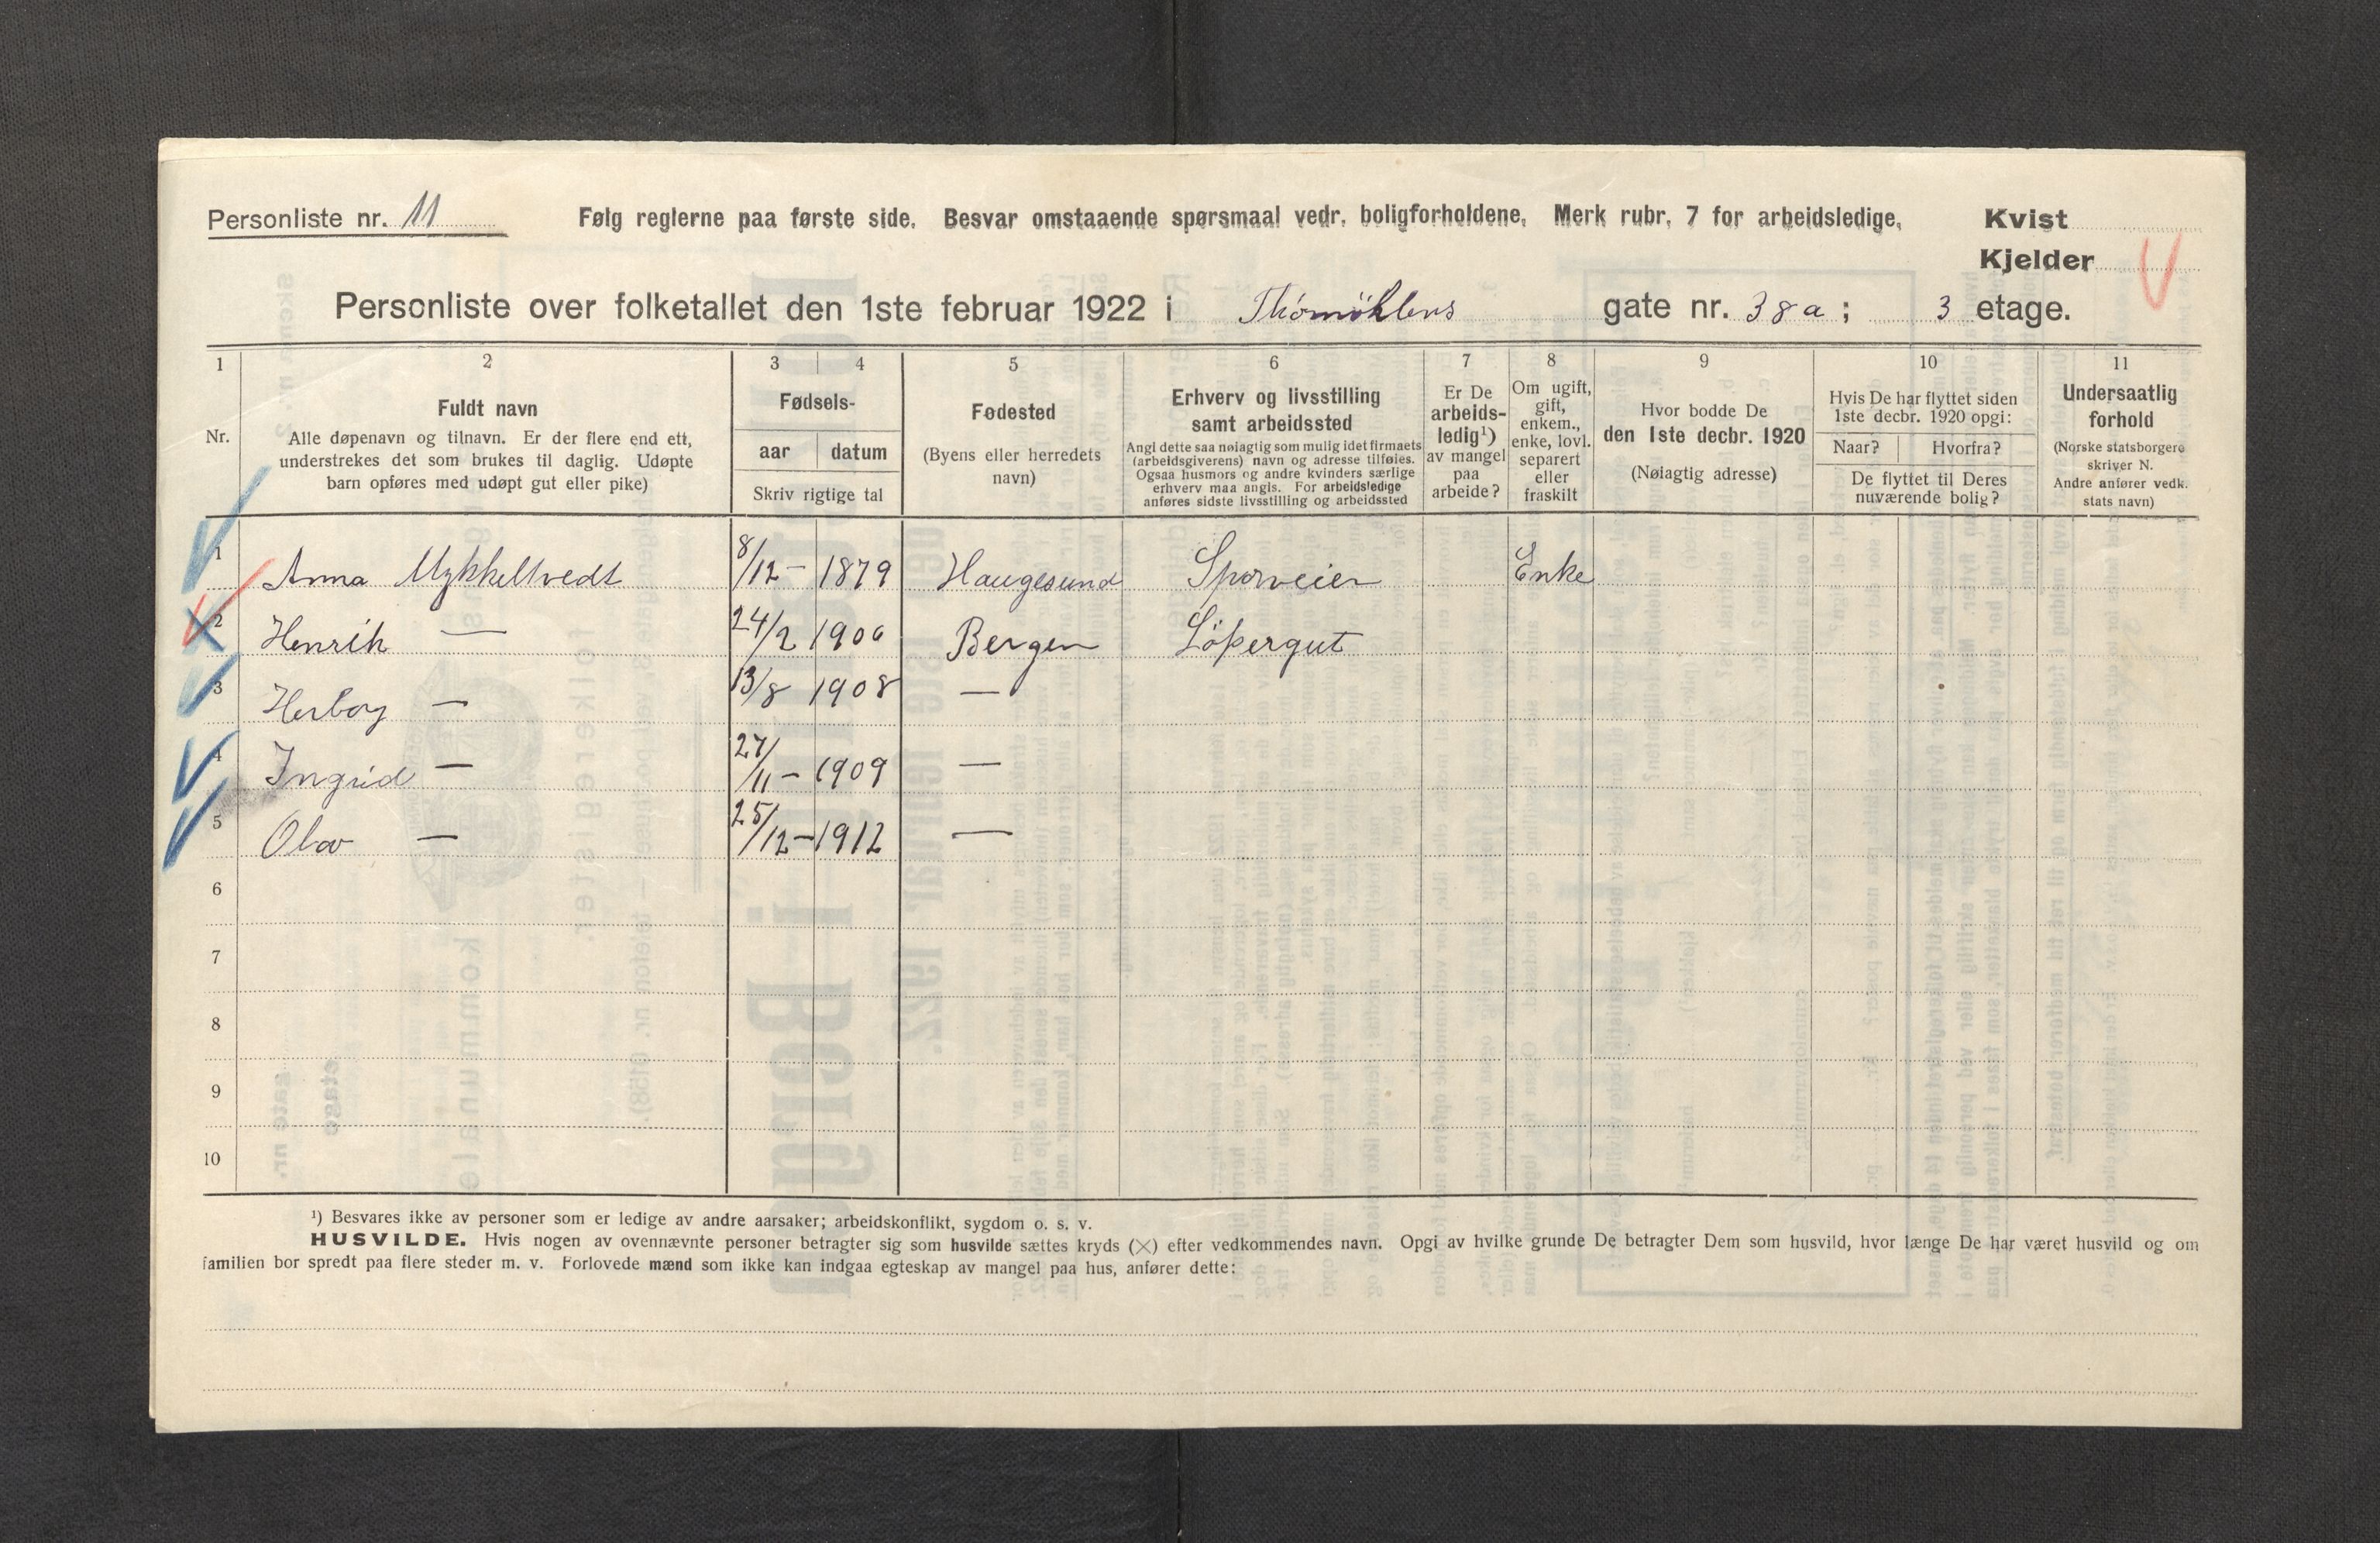 Personliste nr. 11
Følg reglerne paa første side. Besvar omstaaende spørsmaal vedr. boligforholdene. Merk rubr. 7 for arbeidsledige.
Kvist
Kjelder
Personliste over folketallet den 1ste februar 1922 i Thormøhlens gate nr. 38a; 3 etage.
1 2 3 4 5 6 7 8 9 10 11
Nr.
Fuldt navn
Alle døpenavn og tilnavn. Er der flere end ett,
understrekes det som brukes til daglig. Udøpte
barn opføres med udøpt gut eller pike)
Fødsels-
aar datum
Skriv rigtige tal
Fødested
(Byens eller herredets
navn)
Erhverv og livsstilling
samt arbeidssted
Angi dette saa nøiagtig som mulig idet firmaets
(arbeidsgiverens) navn og adresse tilføies.
Ogsaa husmors og andre kvinders særlige
erhverv maa angis. For arbeidsledige
anføres sidste livsstilling og arbeidssted
Er De
arbeids-
ledig¹)
av mangel
paa
arbeide?
Om ugift,
gift,
enkem.,
enke, lovl.
separert
eller
fraskilt
Hvor bodde De
den 1ste decbr. 1920
(Nøiagtig adresse)
Hvis De har flyttet siden
1ste decbr. 1920 opgi:
Naar? Hvorfra?
De flyttet til Deres
nuværende bolig?
Undersaatlig
forhold
(Norske statsborgere
skriver N.
Andre anfører vedk.
stats navn)
1 Anna Mykkeltvedt 8/12 - 1879 Haugesund Sporveier Enke
2 Henrik — 24/2 1906 Bergen Löpergut
3 Herborg — 13/8 1908 —
4 Ingrid — 27/11 - 1909 —
5 Olav — 25/12 - 1912 —
6
7
8
9
10
¹) Besvares ikke av personer som er ledige av andre aarsaker; arbeidskonflikt, sygdom o. s. v.
HUSVILDE. Hvis nogen av ovennævnte personer betragter sig som husvilde sættes kryds (×) efter vedkommendes navn. Opgi av hvilke grunde De betragter Dem som husvild, hvor længe De har været husvild og om
familien bor spredt paa flere steder m. v. Forlovede mænd som ikke kan indgaa egteskap av mangel paa hus, anfører dette: